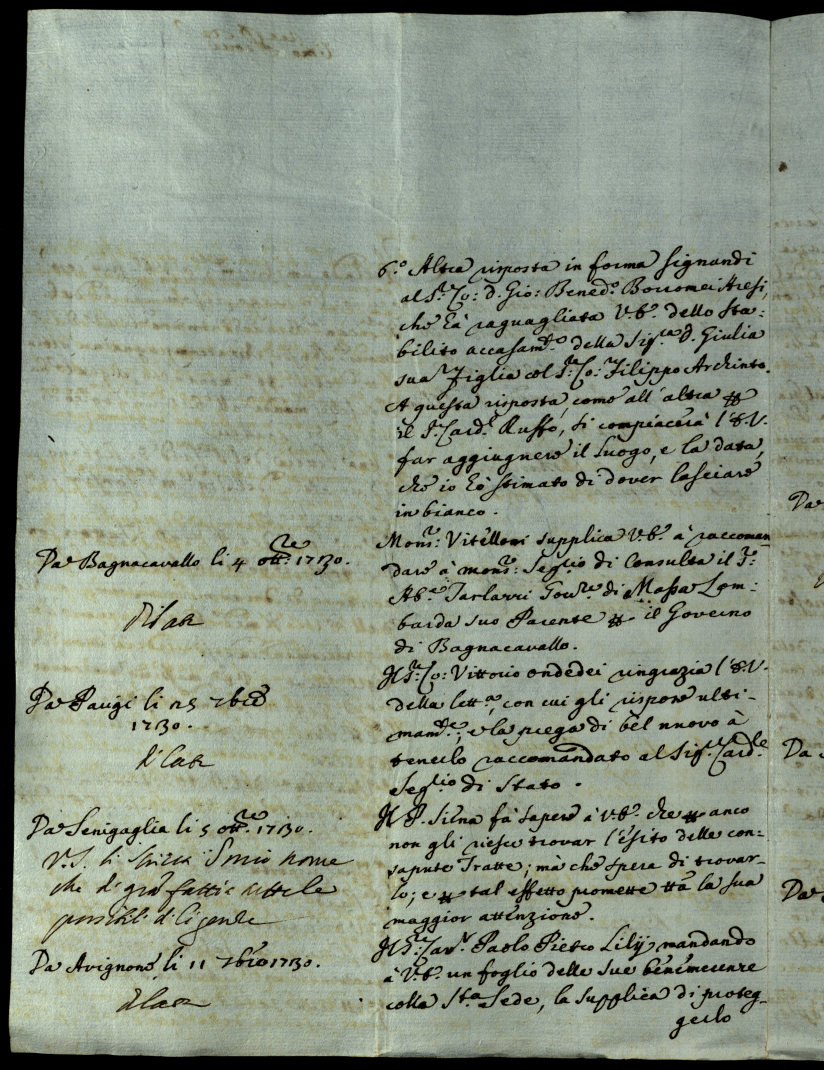 6.° Altra risposta in forma signandi
al S.r Co: D. Gio: Bened.° Borromei Aresi,
che hà raguagliata V.E. dello sta=
bilito accasam.to della Sig.ra D. Giulia
sua Figlia col S.r Co: Filippo Archinto.
A questa risposta, come all'altra
il S.r Card.l Ruffo, si compiacerà l'E.V.
far aggiugnere il Luogo, e la data,
che io hò stimato di dover lasciare
in bianco.
Da Bagnacavallo li 4 ott.re 1730.
Mons.r Vitelloni supplica V.E. à raccoman
dare à mons.r Seg.rio di Consulta il S.r
Ab.e Tarlazzi Gov.re di Massa Lom=
barda suo Parente il Governo
di Bagnacavallo.
Da Parigi li 25 7bre
1730.
Il S.r Co: Vittorio Ondedei ringrazia l'E.V.
della lett.a, con cui gli rispose ulti=
mam.te, e la prega di bel nuovo à
tenerlo raccomandato al Sig.r Card.le
Seg.rio di Stato.
Da Senigaglia li 5 ott.re 1730.
V.S. li scriva mio nome
che di già fatte tutte le
possibili diligenze
Il P. Silva fà sapere à V.E. che anco
non gli riesce trovar l'esito delle con=
sapute Tratte; mà che spera di trovar=
lo; e tal effetto promette tta la sua
maggior attenzione.
Da Avignone li 11 7bre 1730.
Il S.r Cav.r Paolo Pietro Lilij mandando
à V.E. un foglio delle sue benemerenze
colla S.ta Sede, la supplica di proteg=
gerlo